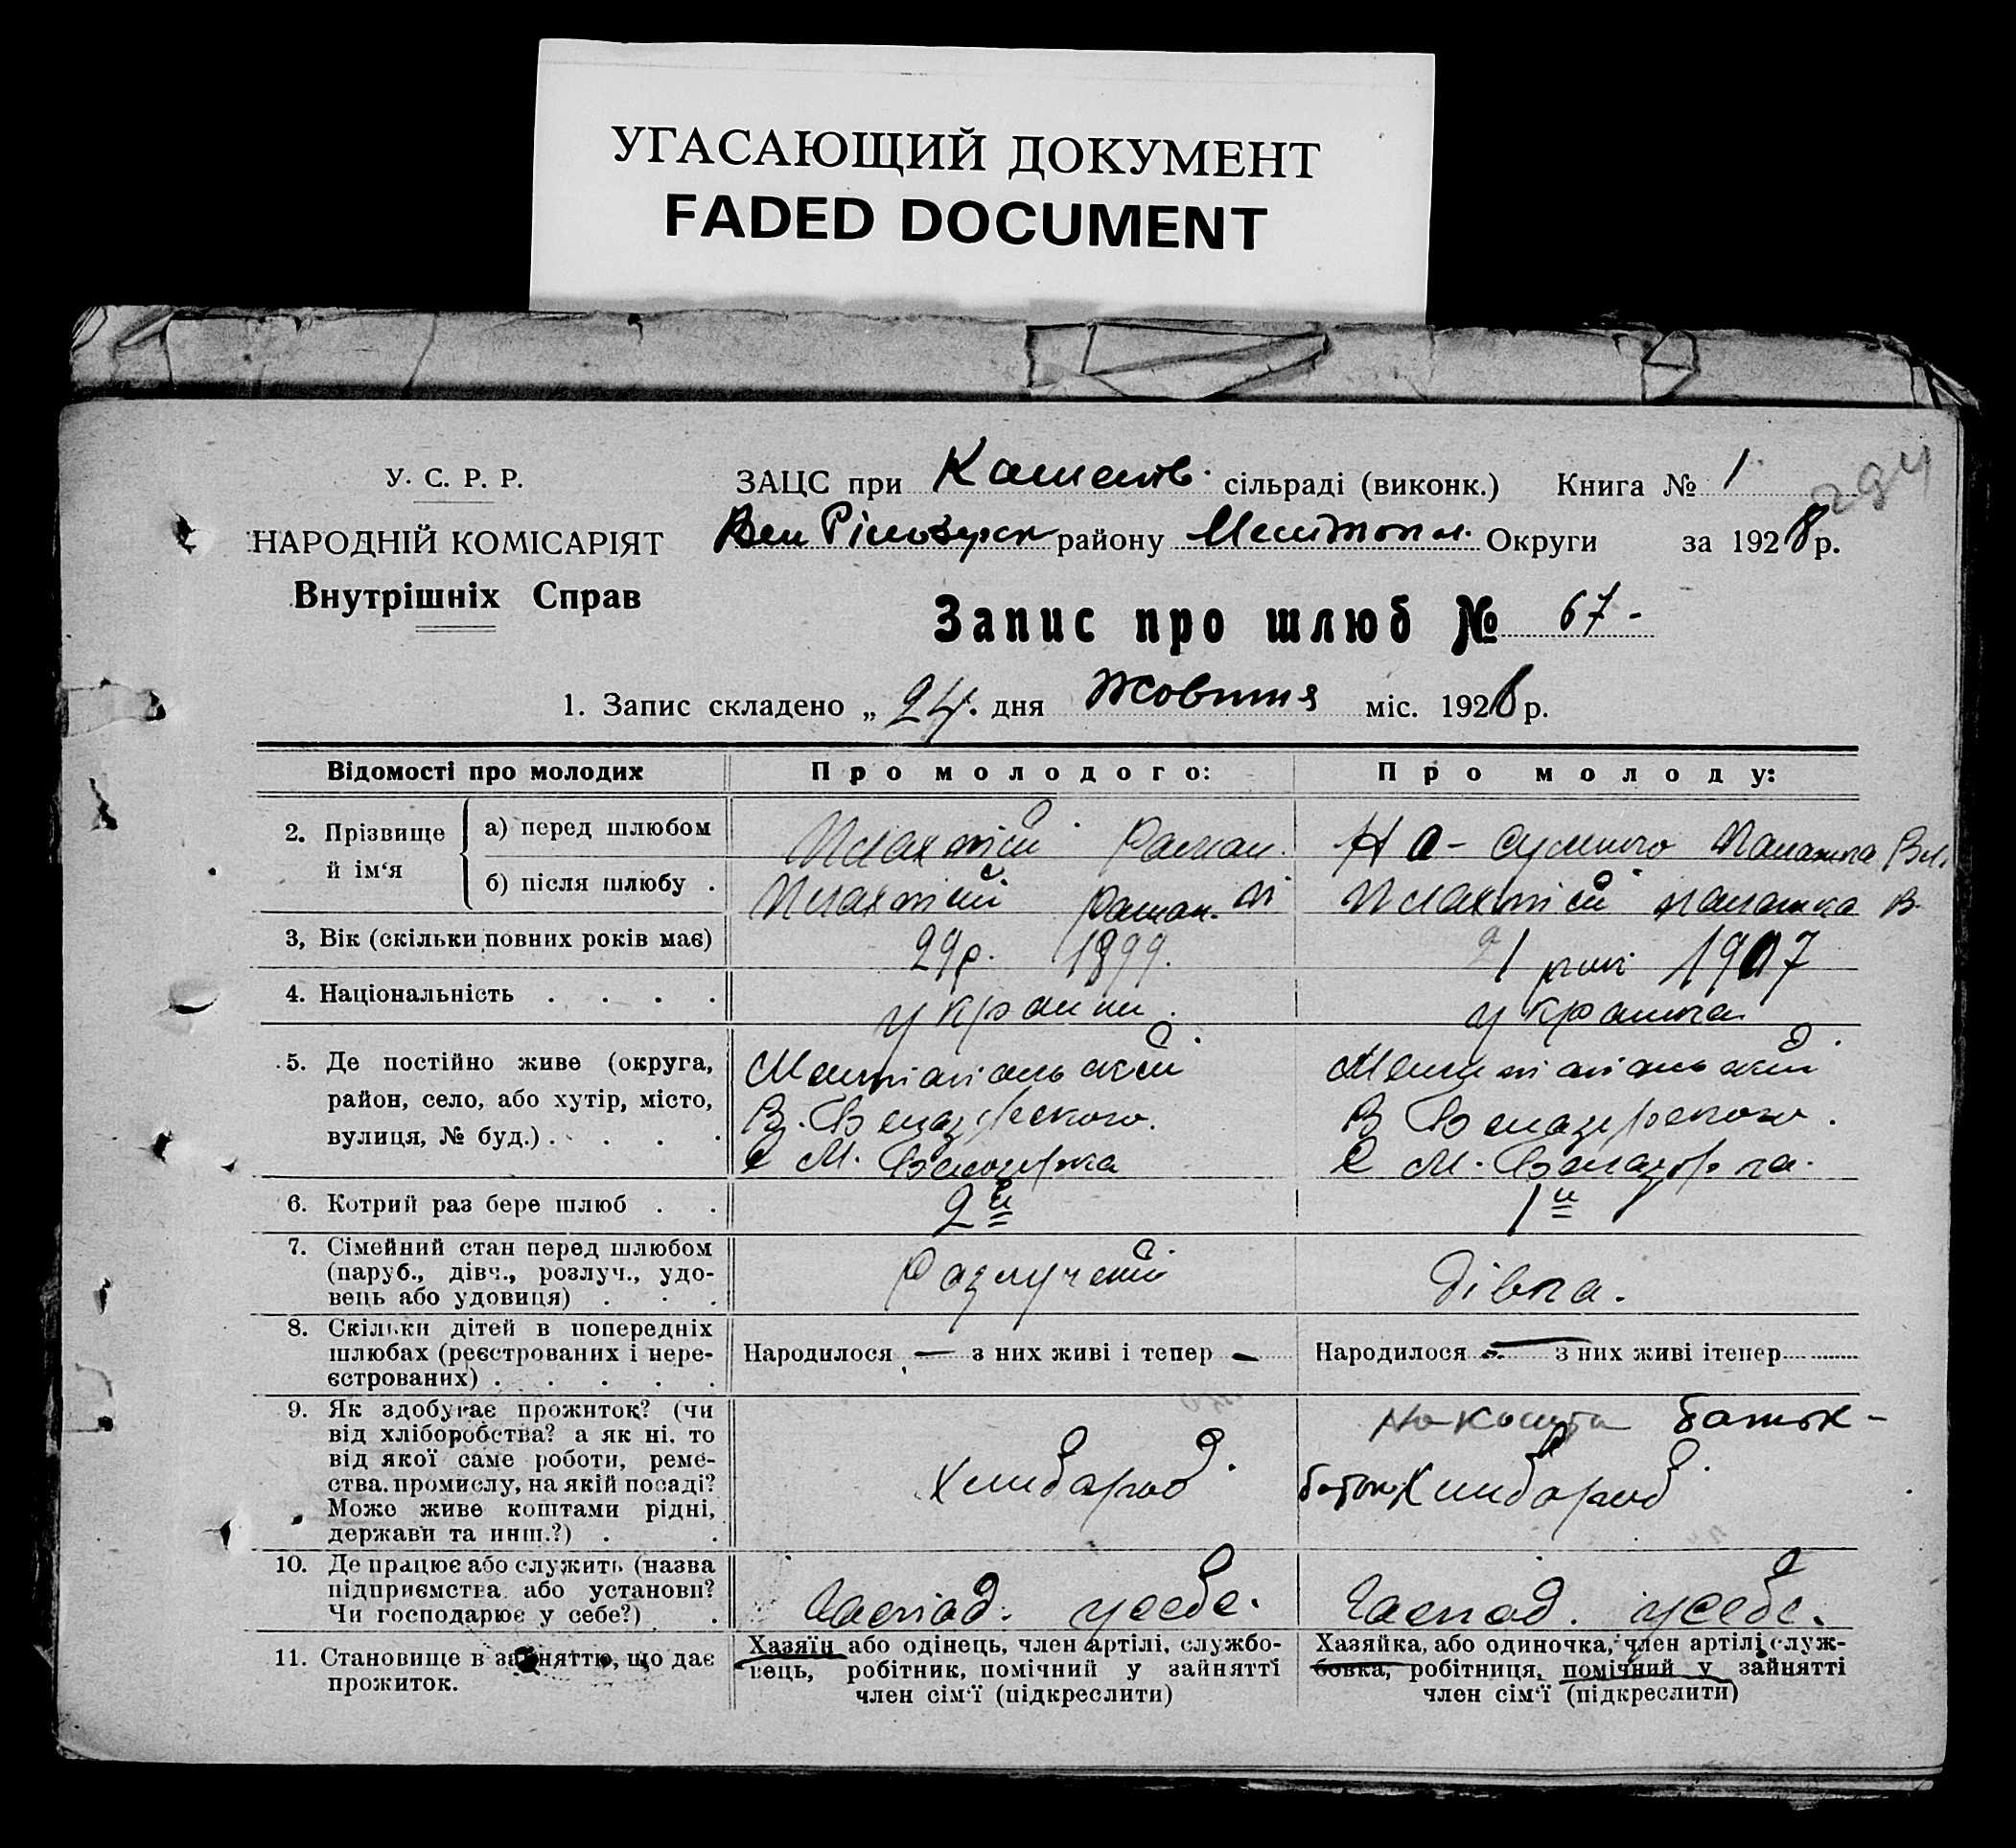 УГАСАЮЩИЙ ДОКУМЕНТ
FADED DOCUMENT
294
У. С. Р. Р.
НАРОДНІЙ КОМІСАРІЯТ
Внутрішніх Справ
ЗАЦС при сільраді (виконк.) Книга № 1
району Округи за 1928 р.
Запис про шлюб № 67-
1. Запис складено „ 24. дня Жовтня міс. 1928 р.
Відомості про молодих
Про молодого:
Про молоду:
2. Прізвище й ім‘я
а) перед шлюбом
б) після шлюбу .
Роман.
Роман.
В.
3, Вік (скільки повних років має)
29р. 1899.
21 рик 1907
4. Національність . . . .
україн.
українка
5. Де постійно живе (округа,
район, село, або хутір, місто,
вулиця, № буд.) . . . .
Мелитапальский
В. Белазерского.
С М. Белозерка
Мелитапальский
В Белазерского.
С М. Белазерка.
6. Котрий раз бере шлюб . .
2й
1й
7. Сімейний стан перед шлюбом
(паруб., дівч., розлуч., удо-
вець або удовиця) . . .
Разлучений
Дівка.
8. Скільки дітей в попередніх
шлюбах (реєстрованих і нере-
єстрованих) . . . . .
Народилося — з них живі і тепер —
Народилося — з них живі ітепер
9. Як здобуває прожиток? (чи
від хліборобства? а як ні, то
від якої саме роботи, реме-
ства, промислу, на якій посаді?
Може живе коштами рідні,
держави та инш.?) . .
Хлибароб.
батьк-
Хлибароб.
10. Де працює або служить (назва
підприємства або установи?
Чи господарює у себе?) .
Гаспад. усебе.
Гаспад. усебе.
11. Становище в зайняттю, що дає
прожиток.
Хазяїн або одінець, член артілі, службо-
вець, робітник, помічний у зайнятті
член сім‘ї (підкреслити)
Хазяйка, або одиночка, член артілі служ-
бовка, робітниця, помічний у зайнятті
член сім‘ї (підкреслити)